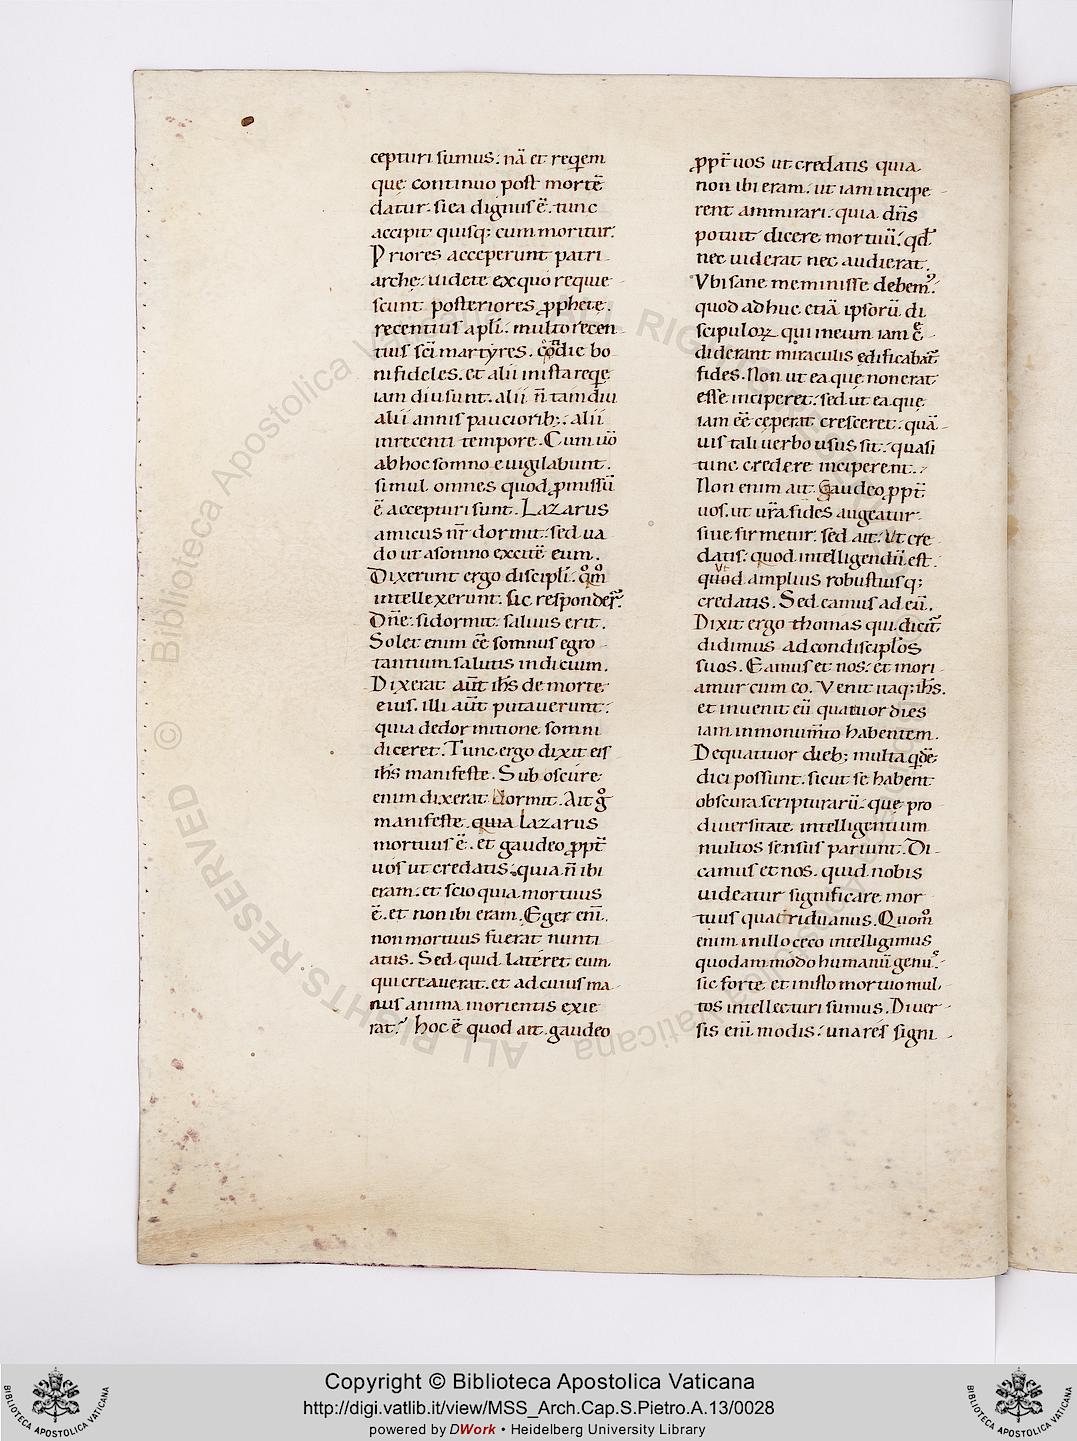 cepturi sumus. nā et requiem
que continuo post mortē
datur. si ea dignus ē. tunc
accipit quisq; cum moritur.
Priores acceperunt patri
arche. uidete ex quo requie
scunt posteriores prophete.
recentius apłi. multo recen
tius sci martyres. cotidie bo
ni fideles. et alii in ista reqe
iam diu sunt. alii n̄ tam diu
alii annis paucioribus; alii
in recenti tempore. Cum uo
ab hoc somno euigilabunt.
simul omnes quod pmissū
ē accepturi sunt. Lazarus
amicus nr̄ dormit. sed ua
do ut a somno excitē eum.
Dixerunt ergo discipli. qm̄
intellexerunt. sic responder.
Dn̄e. si dormit. saluus erit.
Solet enim eē somnus egro
tantium salutis indicium.
Dixerat aūt ihs de morte
eius. illi aūt putauerunt.
quia de dormitione somni
diceret. Tunc ergo dixit eis
ihs manifeste. Sub obscure
enim dixerat dormit. Ait g
manifeste. quia Lazarus
mortuus ē. et gaudeo ppt̄
uos ut credatis. quia n̄ ibi
eram. et scio quia mortuus
ē. et non ibi eram. Eger enī.
non mortuus fuerat nunti
atus. Sed quid lateret eum.
qui creauerat. et ad cuius ma
nus anima morientis exie
rat? hoc ē quod ait. gaudeo
ppt̄ uos ut credatis quia
non ibi eram. ut iam incipe
rent ammirari. quia dn̄s
potuit dicere mortuū. qd
nec uiderat nec audierat.
Vbi sane meminisse debem.
quod adhuc etiā ipsorū di
scipulorum qui in eum iam c
diderant miraculis edificabat̄
fides. Non ut ea que non erat
esse inciperet. sed ut ea que
iam eē ceperat cresceret. quā
uis tali uerbo usus sit. quasi
tunc credere inciperent.
Non enim ait. Gaudeo ppt̄
uos. ut ur̄a fides augeatur.
siue firmetur. sed ait. Ut cre
datis. quod intelligendū est.
Vt
quod amplius robustiusq;
credatis. Sed eamus ad eū.
Dixit ergo thomas qui dicit̄
didimus ad condisciplos
suos. Eamus et nos. et mori
amur cum eo. Venit itaq; ihs.
et inuenit eū quatuor dies
iam in monumīto habentem.
De quattuor dieb; multa qde
dici possunt. sicut se habent
obscura scripturarū. que pro
diuersitate intelligentium
multos sensus pariunt. Di
camus et nos. quid nobis
uideatur significare mor
tuus quatriduanus. Quom
enim in illo ceco intelligimus
quodammodo humanū genus.
sic forte et in isto mortuo mul
tos intellecturi sumus. Diuer
sis enī modis. una res signi
ALL RIGHTS RESERVED © Biblioteca Apostolica Vaticana
Copyright © Biblioteca Apostolica Vaticana
http://digi.vatlib.it/view/MSS_Arch.Cap.S.Pietro.A.13/0028
powered by DWork • Heidelberg University Library
BIBLIOTECA APOSTOLICA VATICANA
BIBLIOTECA APOSTOLICA VATICANA